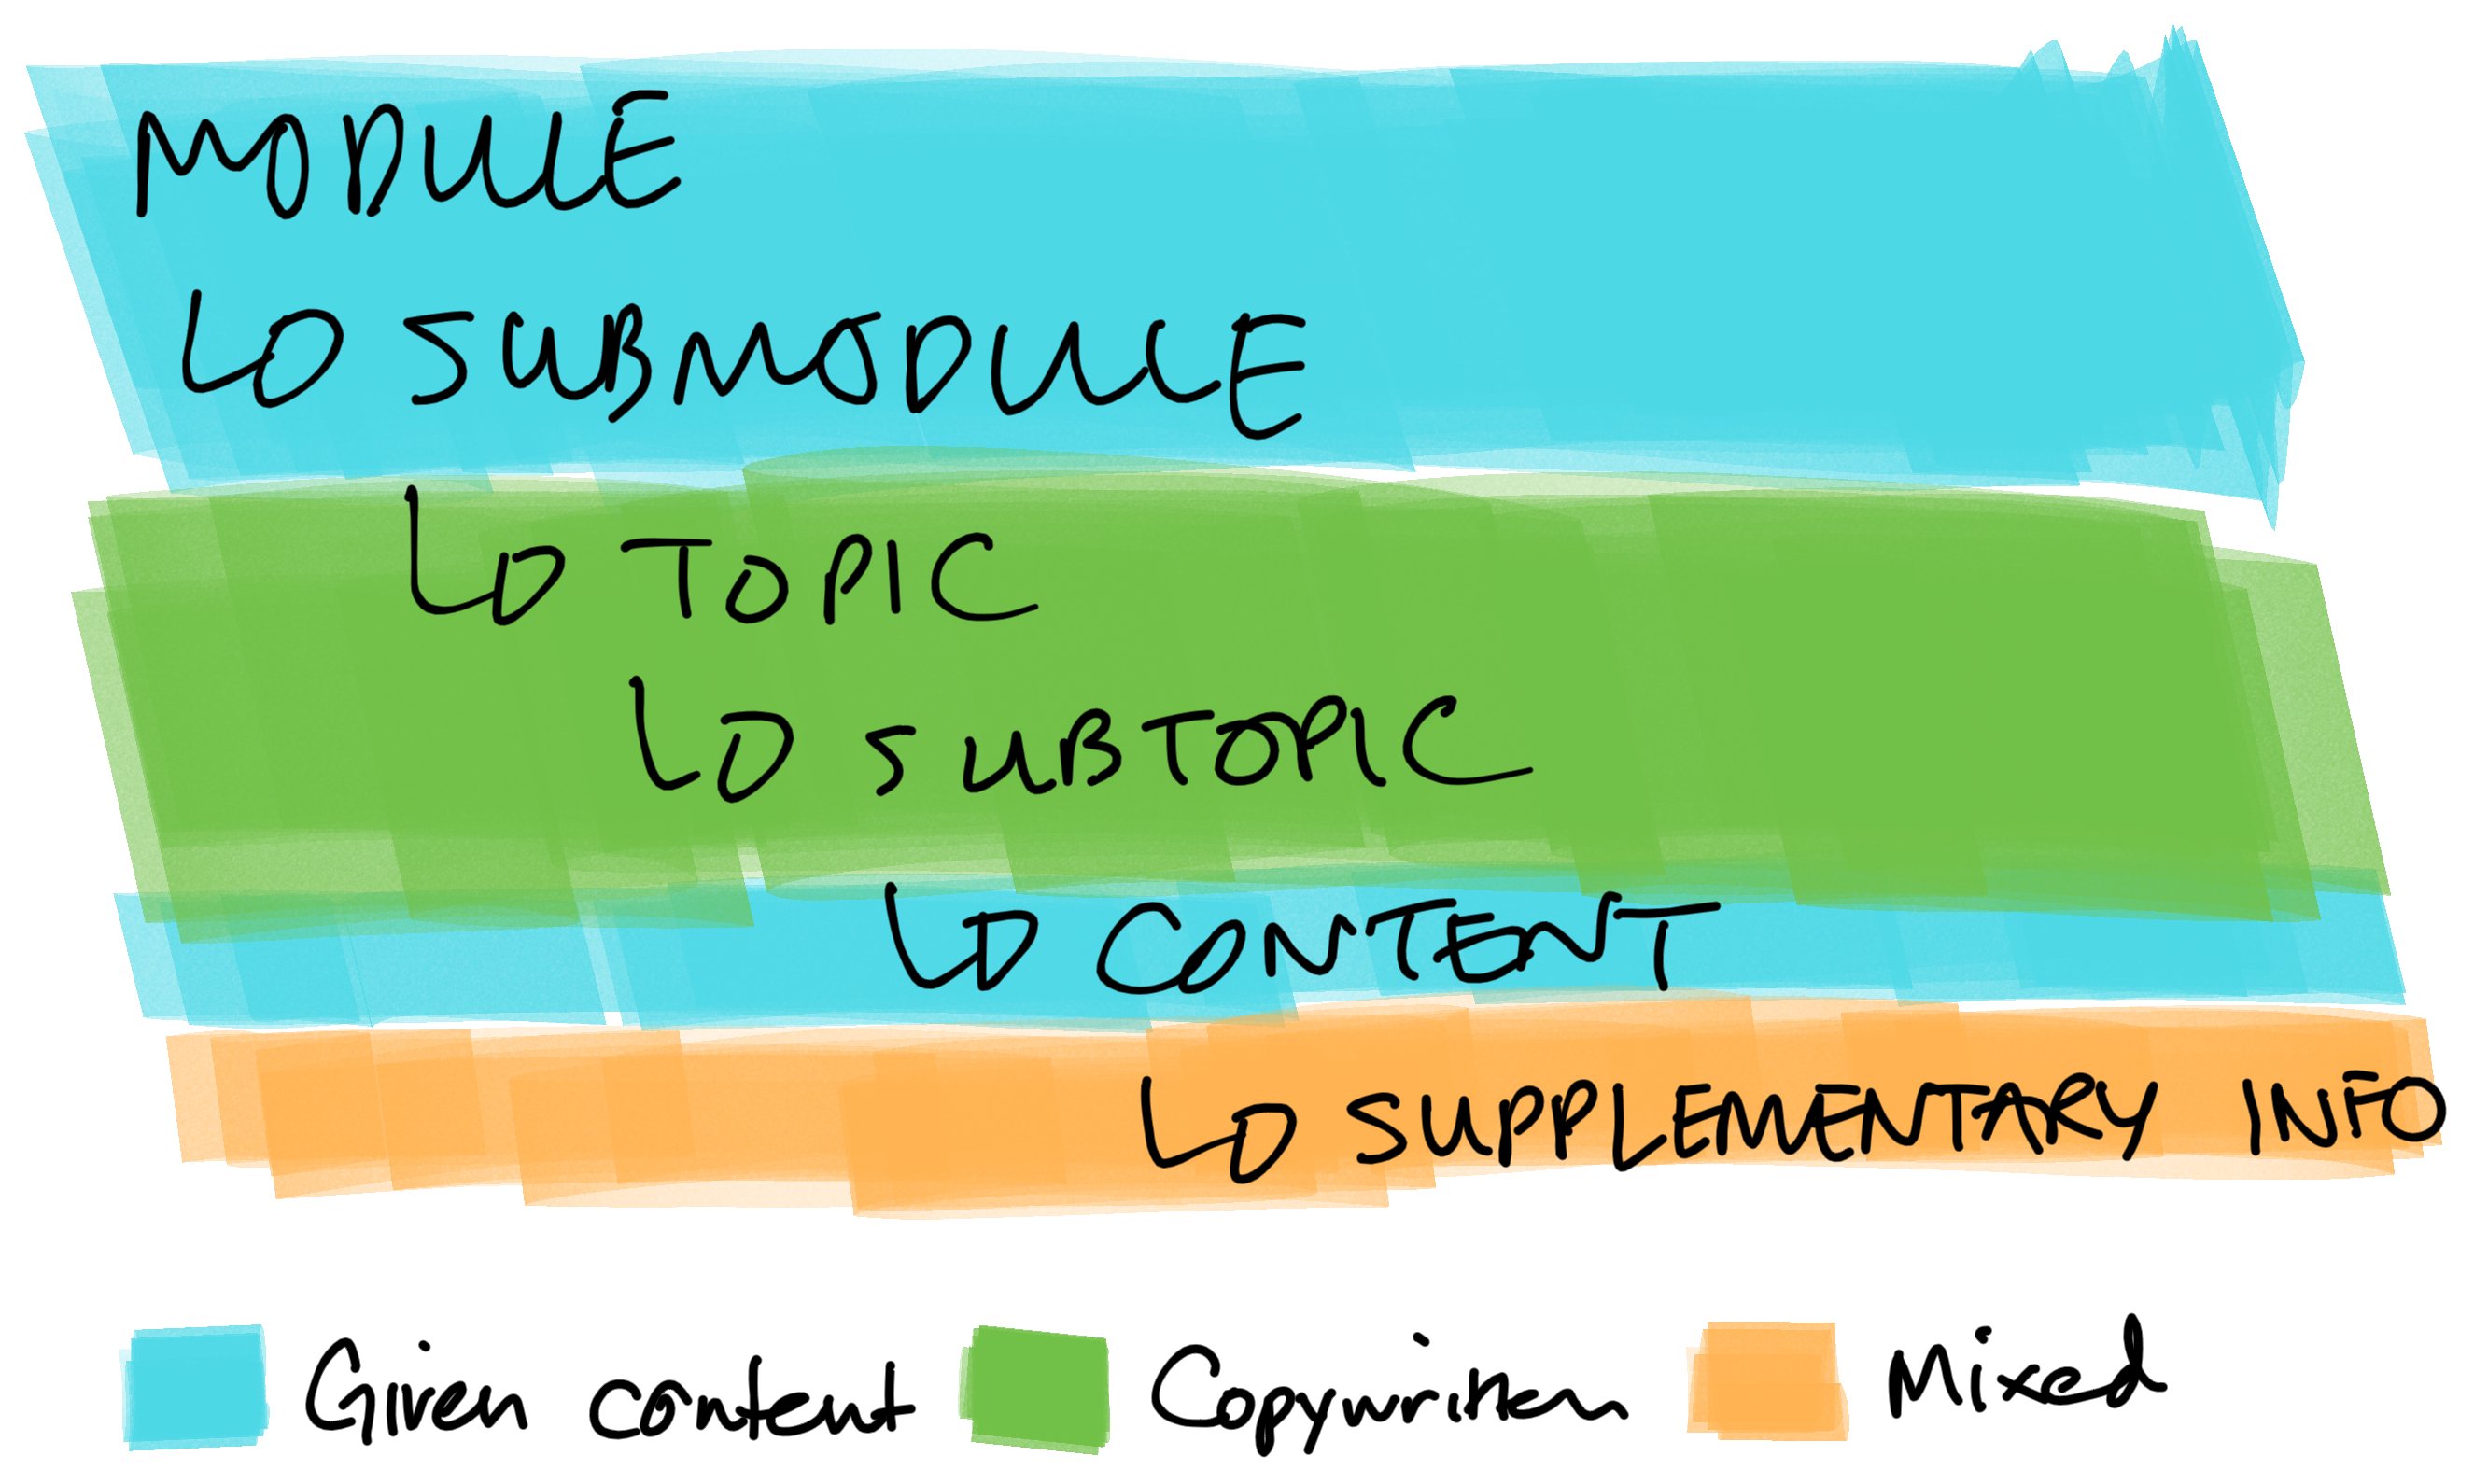 MODULE
SUBMODULE
TOPIC
SUBTOPIC
CONTENT
SUPPLEMENTARY INFO
Given content Copywritten Mixed